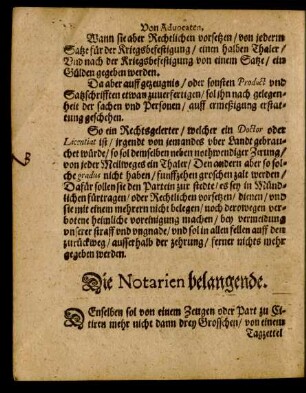 Von Advocaten.
Wann sie aber Rechtlichen vorsetzen/ von jederm
Satze für der Kriegsbefestigung/ einen halben Thaler/
Vnd nach der Kriegsbefestigung von einem Satze/ ein
Gülden gegeben werden.
Da aber auff gezeugnis/ oder sonsten Product vnd
Satzschrifften etwan zuuerfertigen/ sol ihn nach gelegen-
heit der sachen vnd Personen/ auff ermessigung erstat-
tung geschehen.
So ein Rechtsgelerter/ welcher ein Doctor oder
Licentiat ist/ irgend von jemandes vber Landt gebrau-
chet würde/ so sol demselben neben notwendiger Zerung/
von jeder Meilweges ein Thaler/ Den andern aber so sol-
che gradus nicht haben/ funffzehen groschen zalt werden/
Dafür sollen sie den Partein zur stedte/ es sey in Münd-
lichen fürtragen/ oder Rechtlichen vorsetzen/ dienen/ vnd
sie mit einem mehrern nicht belegen/ noch derowegen ver-
botene heimliche voreinigung machen/ bey vermeidung
vnserer straff vnd vngnade/ vnd sol in allen fellen auff dem
zurückweg/ ausserhalb der zehrung/ ferner nichts mehr
gegeben werden.
Die Notarien belangende.
DEnselben sol von einem Zeugen oder Part zu Ci-
tiren mehr nicht dann drey Grosschen/ von einem
Tagzettel